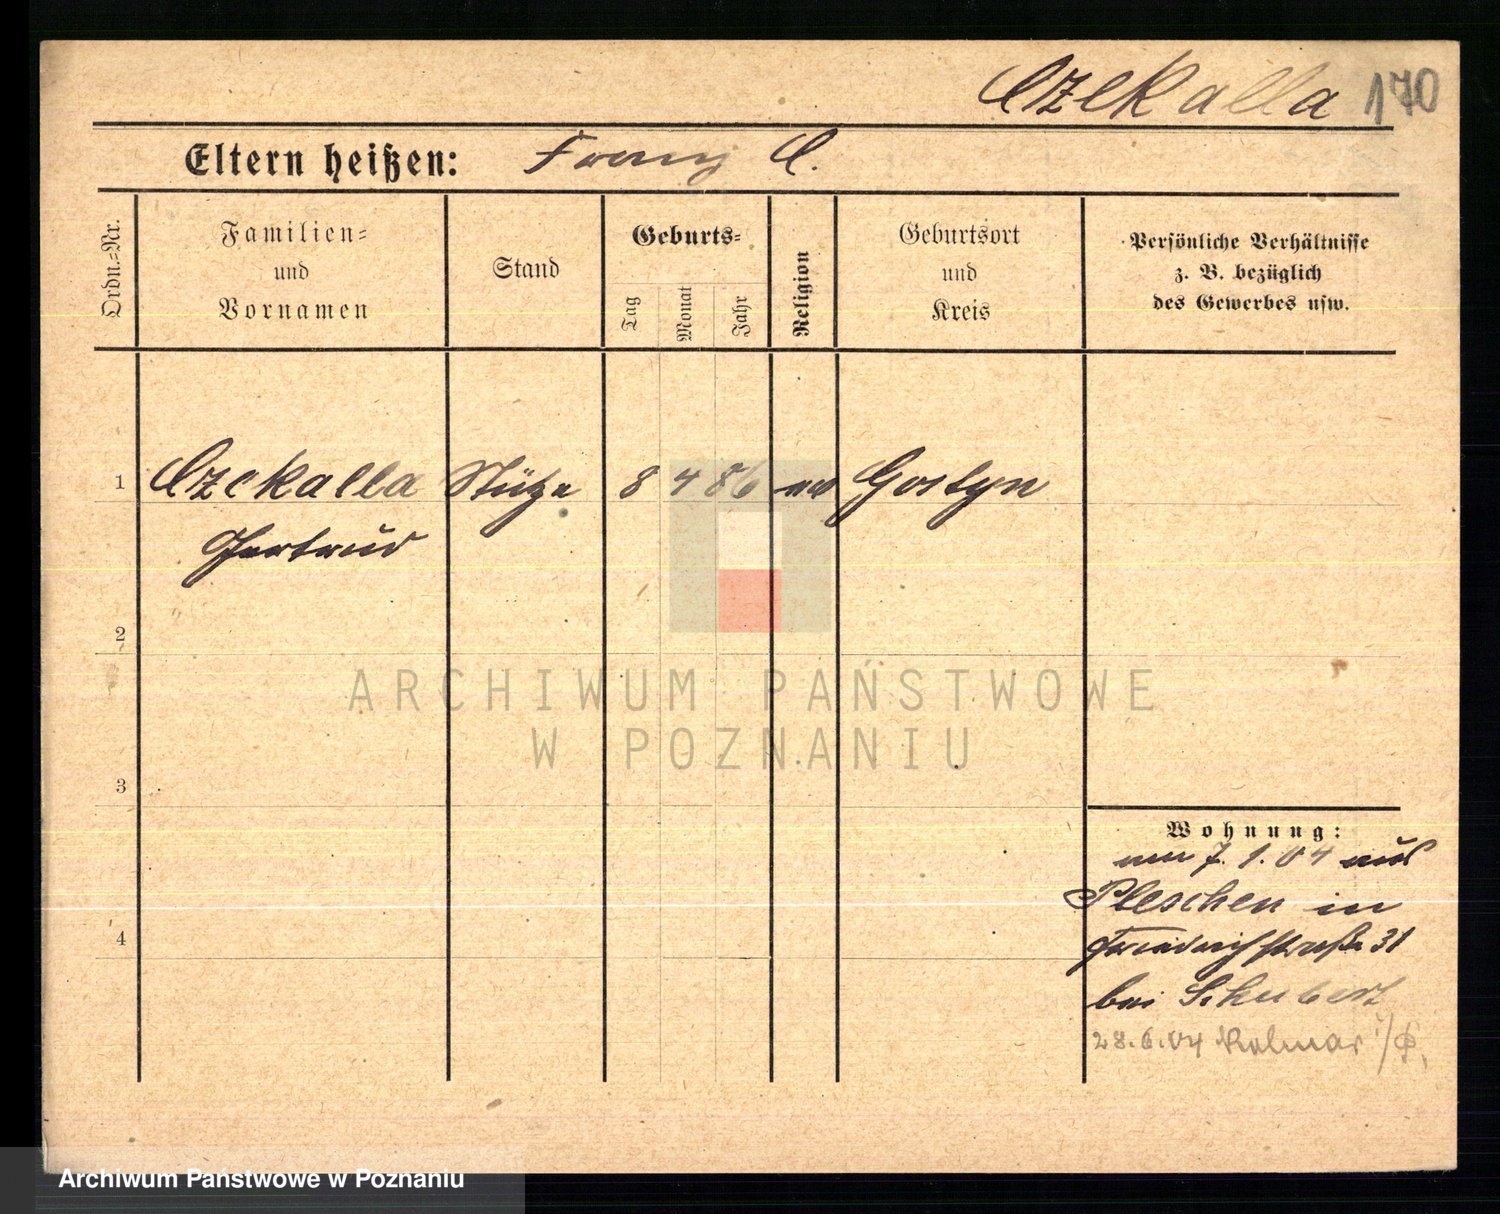 Czekalla 170
Eltern heißen: Franz C.
Ordn.-Nr.
Familien-
und
Vornamen
Stand
Geburts-
Tag
Monat
Jahr
Religion
Geburtsort
und
Kreis
Persönliche Verhältnisse
z. B. bezüglich
des Gewerbes usw.
1 Czekalla Stütze 8 4 86 Gostyn
Gertrud
2
3
4
Wohnung:
am 7. 1. 04 aus
Pleschen in
Friedrichstraße 31
bei Schubert
28.6.04 Kolmar i/P.
ARCHIWUM PAŃSTWOWE
W POZNANIU
Archiwum Państwowe w Poznaniu